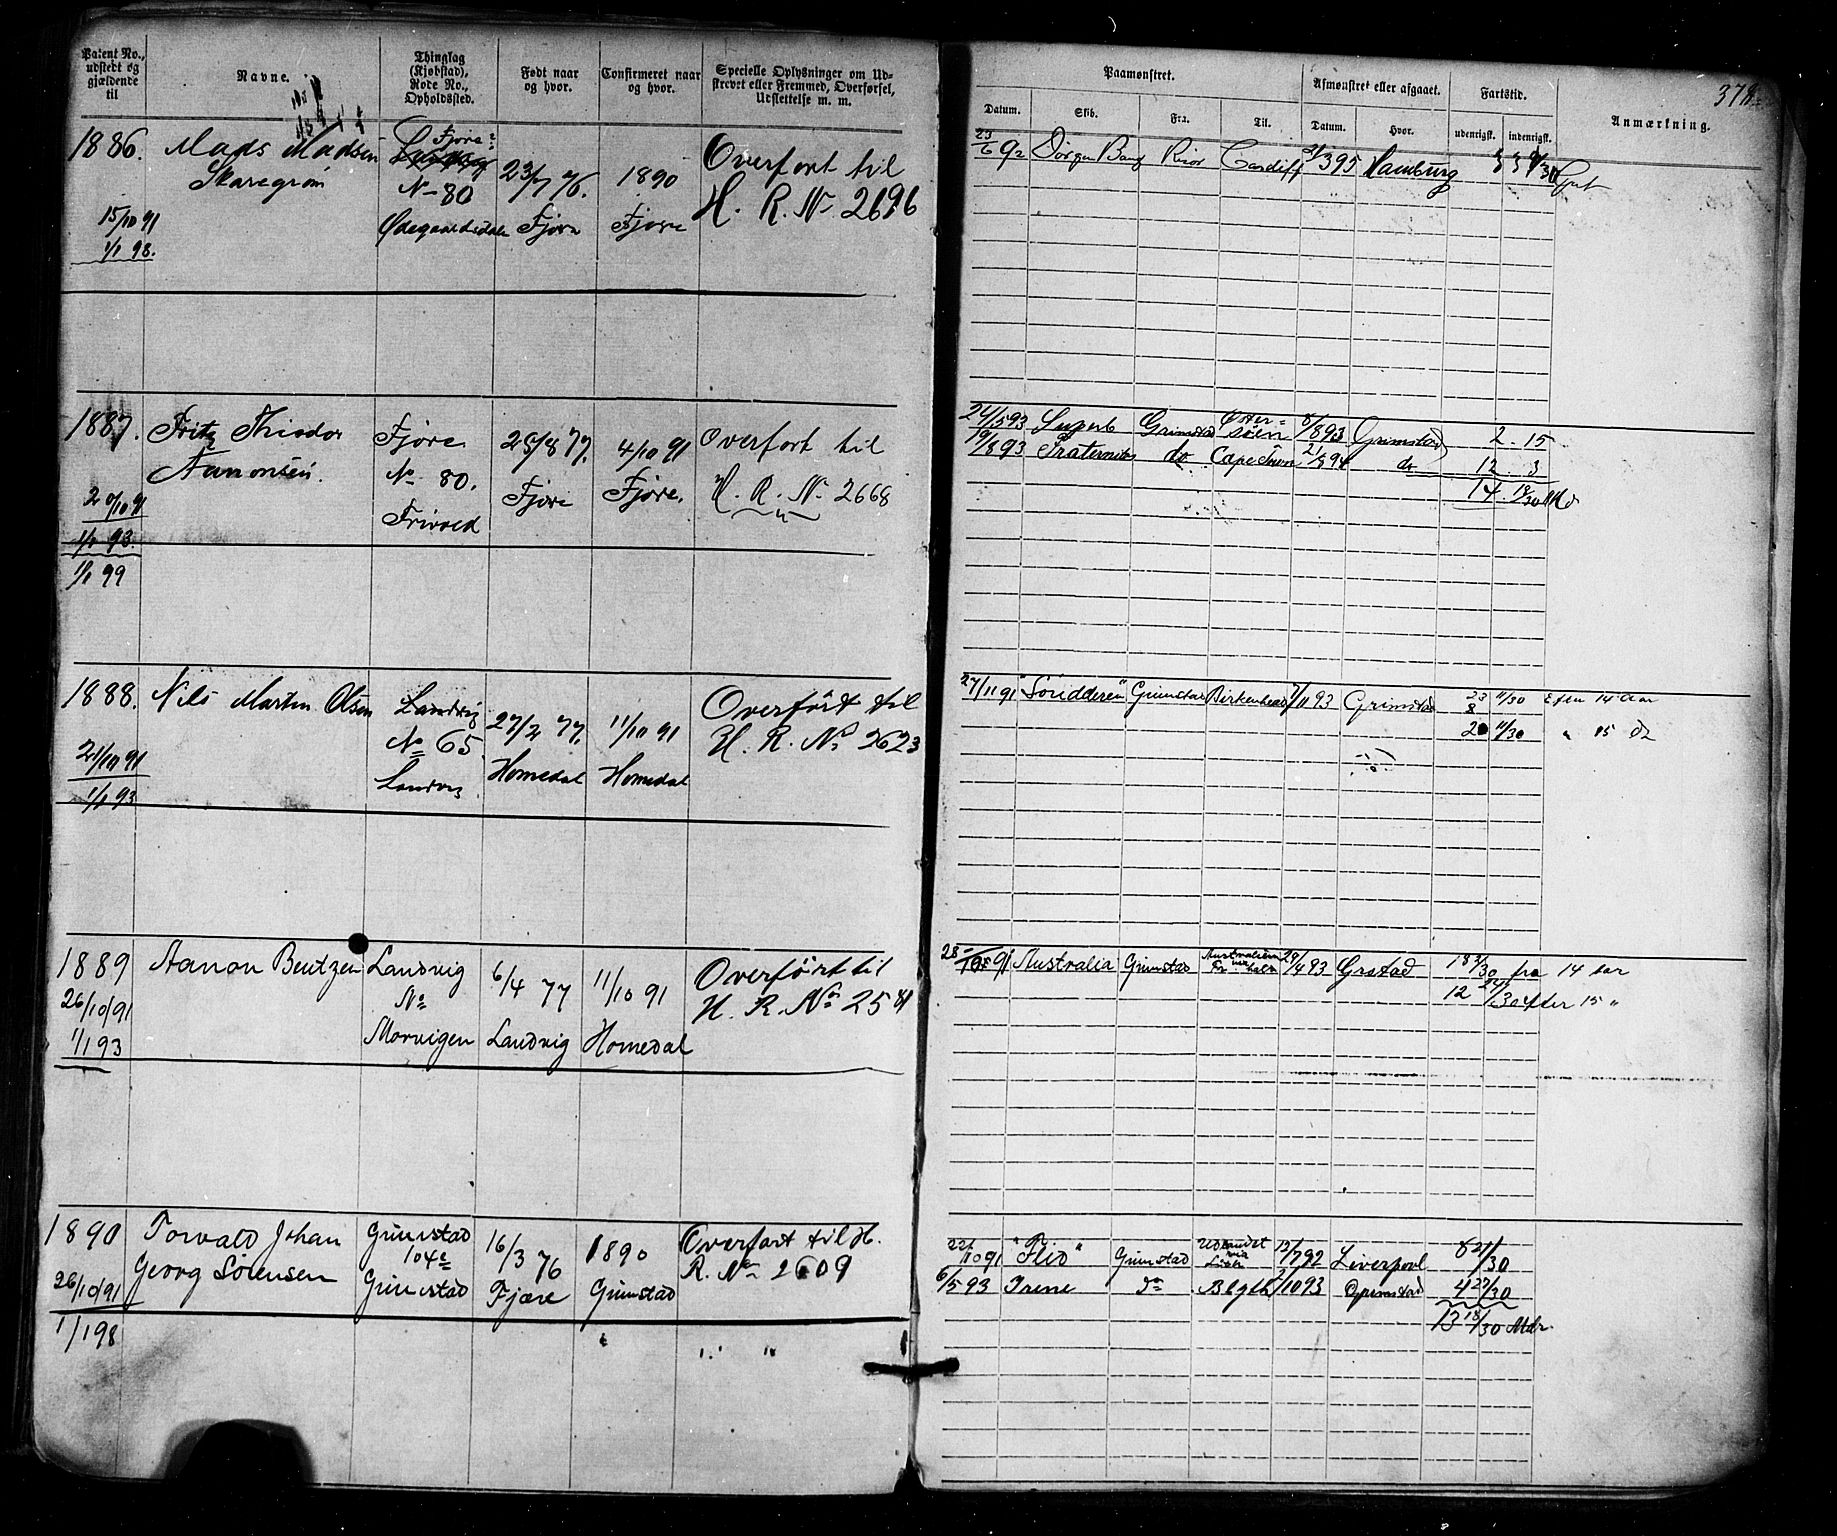 Patent No., udstedt og gjældende til
Navne.
Thinglag (Kjøbstad), Rode No., Opholdssted.
Født naar og hvor.
Confirmeret naar og hvor.
Specielle Oplysninger om Udskrevet eller Fremmed, Overførsel, Udslettelse m. m.
Paamønstret.
Afmønstret eller afgaaet.
Fartstid.
Anmærkning.
378
Datum.
Skib.
Fra.
Til.
Datum.
Hvor.
udenrigsk.
indenrigsk.
1886.
15/10 91
1/1 98.
Mads Madsen
Skaregrøm
Fjære
No 80
Ødegaardsdalen
23/7 76.
Fjære
1890
Fjære
Overført til
H. R. No 2696
23/6 92
Jørgen Bang
Risør
Cardiff
21/3 95
Hamburg
1887.
20/10 91
1/1 93.
1/1 99
Fritz Thiodor
Aanonsen.
Fjære
No 80.
Frivold
28/8 77.
Fjære
4/10 91
Fjære.
Overført til
H. R. No 2668
24/5 93
Superb
Grimstad
Østersøen
8/8 93
Grimstad
2. 15
19/8 93
Fraternitas
do
Capetown
do
12. 3
14. 18/30 Md
1888.
21/10 91
1/1 93
Nils Martin Olsen
Landvig
No 65
Landvig
27/2 77.
Homedal
11/10 91
Homedal
Overført til
H. R. No 2623
27/11 91
Grimstad
Birkenhead
7/11 93
Grimstad
23 11/30 Efter 14 Aar
8
20 11/30 " 15 do
1889
26/10 91
1/1 93
Aanon Bentzen
Landvig
No
Morvigen
6/4 77
Landvig
11/10 91
Homedal
Overført til
H. R. No 2581
28/10 91
Australia
Grimstad
Australien via
29/4 93
Grstad
18 3/30 fra 14 aar
12 24/30 efter 15 "
1890
26/10 91
1/1 98
Torvald Johan
Georg Sörensen
Grimstad
104a
Grimstad
16/3 76
Fjære
1890
Grimstad
Overført til H.
R. No 2609
22/10 91
"Flid"
Grimstad
Udlandet via
12/7 92
Liverpool
8 21/30
6/5 93
Irene
do
Blyth
2/10 93
Grimstad
4 27/30
13 18/30 Mdr.